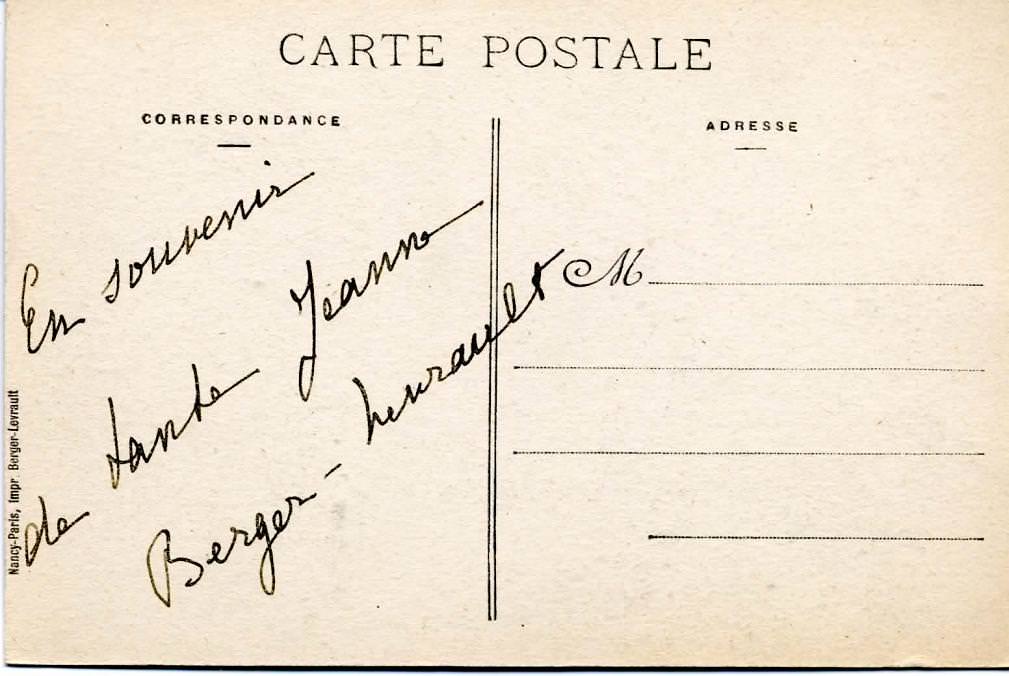 CARTE POSTALE
CORRESPONDANCE
ADRESSE
En souvenir
de tante Jeanne
Berger-Levrault
M
Nancy-Paris, Impr. Berger-Levrault